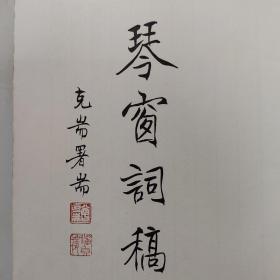 琴窗詞稿
克耑署耑